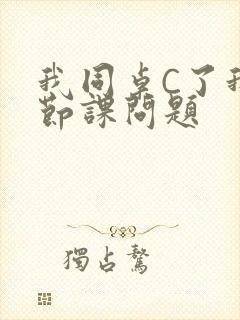 我同卓C了我
節課問題
獨占鰲